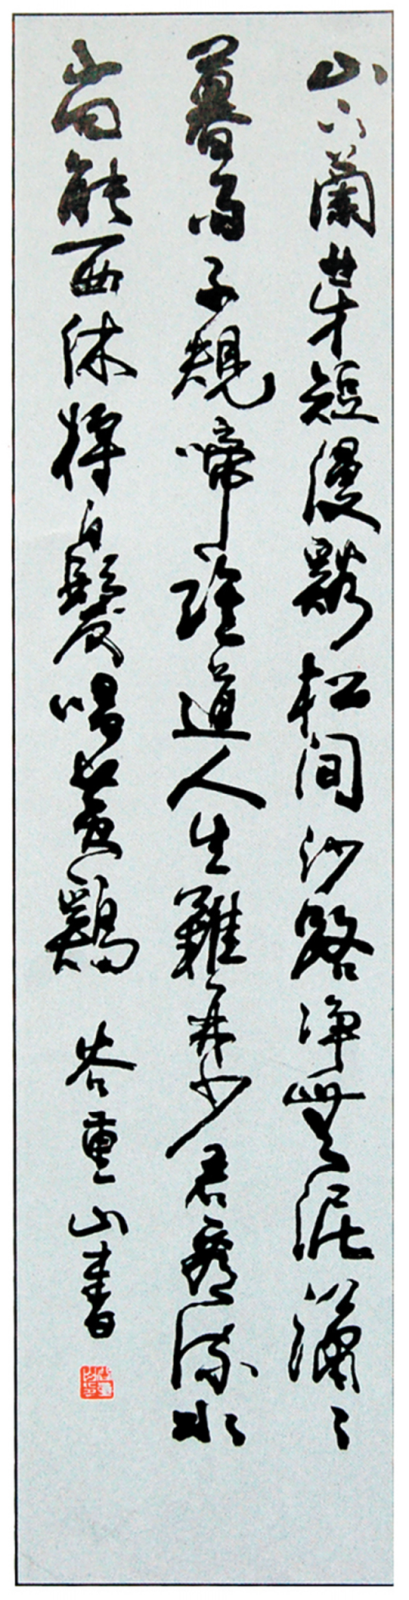 山下蘭芽短浸谿松间沙路净無泥瀟〻
暮雨子規啼誰道人生難再少君看流水
尚能西休将白髮唱黄鷄 谷重山書